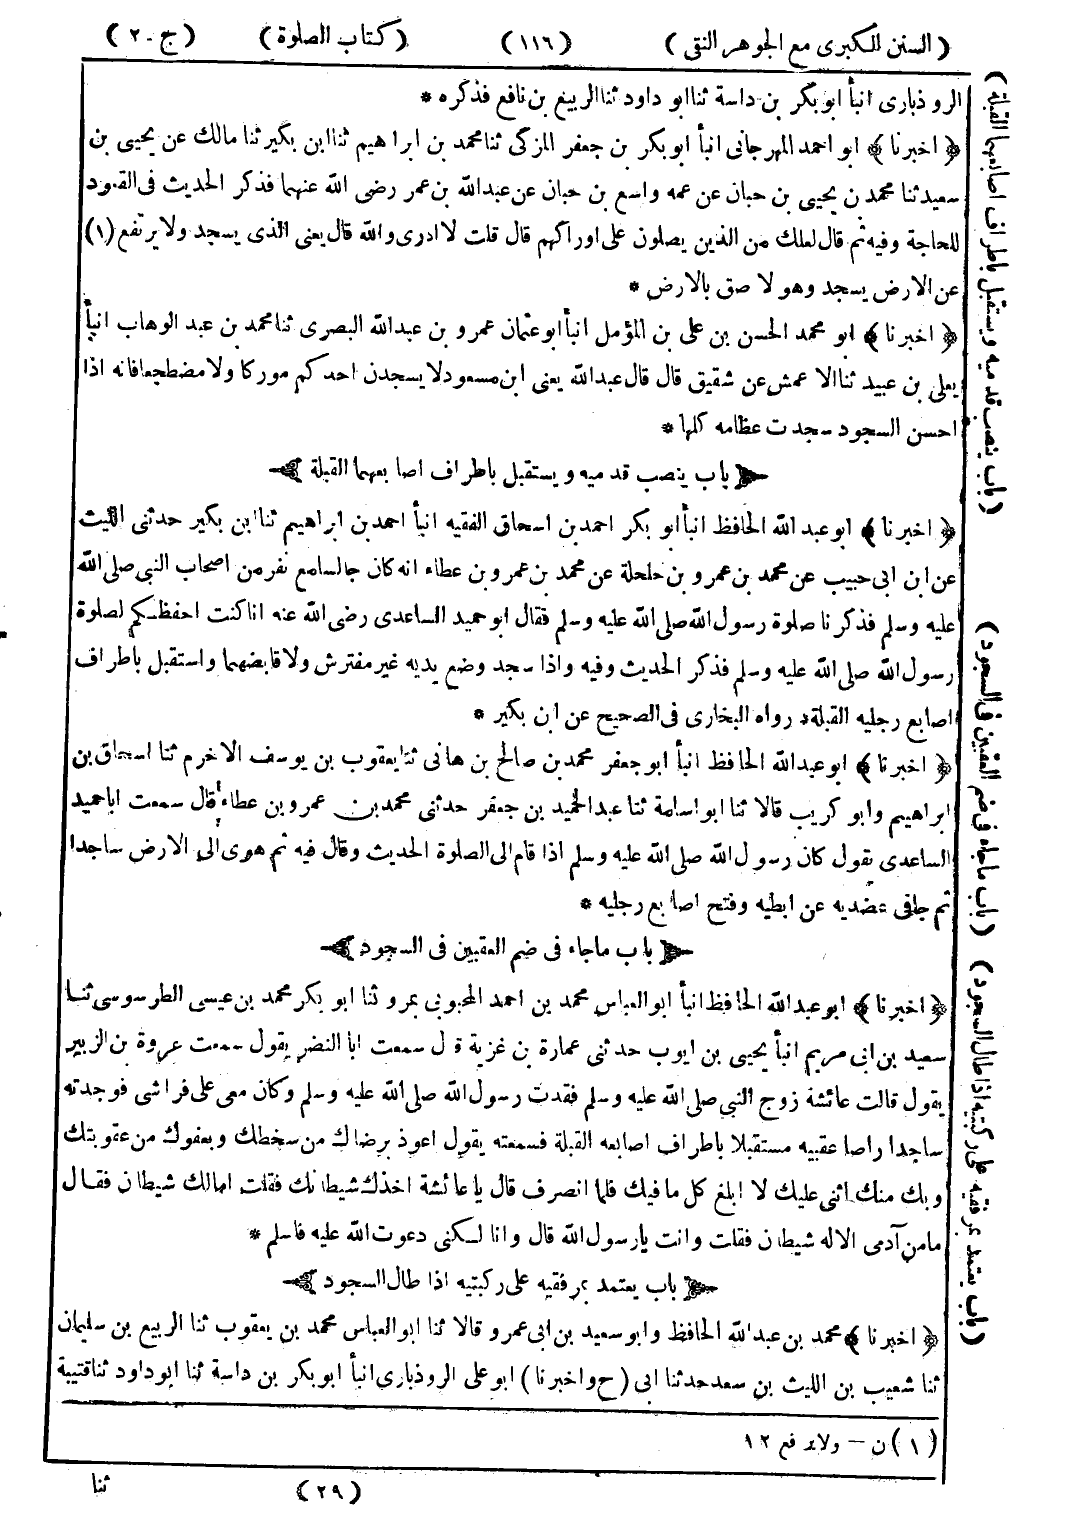 ( السنن الكبرى مع الجوهر النقى ) (١١٦) ( كتاب الصلوة ) ( ج - ٢ )
الروذبارى انبأ ابوبكر بن داسة ثنا ابو داود ثنا الربيع بن نافع فذكره *
﴿ اخبرنا ﴾ ابو احمد المهرجانى انبأ ابوبكر بن جعفر المزكى ثنا محمد بن ابراهيم ثنا ابن بكير ثنا مالك عن يحيى بن
سعيد ثنا محمد بن يحيى بن حبان عن عمه واسع بن حبان عن عبدالله بن عمر رضى الله عنهما فذكر الحديث فى القعود
للحاجة وفيه ثم قال لعلك من الذين يصلون على اوراكهم قال قلت لا ادرى والله قال يعنى الذى يسجد ولا يرتفع (١)
عن الارض يسجد وهو لا صق بالارض *
﴿ اخبرنا ﴾ ابو محمد الحسن بن على بن المؤمل انبأ ابوعثمان عمرو بن عبدالله البصرى ثنا محمد بن عبد الوهاب انبأ
يعلى بن عبيد ثنا الاعمش عن شقيق قال قال عبدالله يعنى ابن مسعود لا يسجدن احدكم موركا ولا مضطجعا فانه اذا
احسن السجود سجدت عظامه كلها *
باب ينصب قدميه ويستقبل باطراف اصابعهما القبلة
﴿ اخبرنا ﴾ ابو عبد الله الحافظ انبأ ابو بكر احمد بن اسحاق الفقيه انبأ احمد بن ابراهيم ثنا ابن بكير حدثنى الليث
عن ابن ابى حبيب عن محمد بن عمرو بن حلحلة عن محمد بن عمرو بن عطاء انه كان جالسا مع نفر من اصحاب النبى صلى الله
عليه وسلم فذكرنا صلوة رسول الله صلى الله عليه وسلم فقال ابو حميد الساعدى رضى الله عنه انا كنت احفظكم لصلوة
رسول الله صلى الله عليه وسلم فذكر الحديث وفيه واذا سجد وضع يديه غير مفترش ولا قابضهما واستقبل باطراف
اصابع رجليه القبلة رواه البخارى فى الصحيح عن ابن بكير *
﴿ اخبرنا ﴾ ابو عبدالله الحافظ انبأ ابو جعفر محمد بن صالح بن هانى ثنا يعقوب بن يوسف الاخرم ثنا اسحاق بن
ابراهيم وابو كريب قالا ثنا ابو اسامة ثنا عبدالحميد بن جعفر حدثنى محمد بن عمرو بن عطاء قال سمعت اباحميد
الساعدى يقول كان رسول الله صلى الله عليه وسلم اذا قام الى الصلوة الحديث وقال فيه ثم هوى الى الارض ساجدا
ثم جافى عضديه عن ابطيه وفتح اصابع رجليه *
باب ماجاء فى ضم العقبين فى السجود
﴿ اخبرنا ﴾ ابو عبدالله الحافظ انبأ ابو العباس محمد بن احمد المحبوبى بمرو ثنا ابو بكر محمد بن عيسى الطرسوسى ثنا
سعيد بن ابى مريم انبأ يحيى بن ايوب حدثنى عمارة بن غزية قال سمعت ابا النضر يقول سمعت عروة بن الزبير
يقول قالت عائشة زوج النبى صلى الله عليه وسلم فقدت رسول الله صلى الله عليه وسلم وكان معى على فراشى فوجدته
ساجدا راصا عقبيه مستقبلا باطراف اصابعه القبلة فسمعته يقول اعوذ برضاك من سخطك وبعفوك من عقوبتك
وبك منك اثنى عليك لا ابلغ كل ما فيك فلما انصرف قال يا عائشة اخذك شيطانك فقلت امالك شيطان فقال
مامن آدمى الا له شيطان فقلت وانت يارسول الله قال وانا لكنى دعوت الله عليه فاسلم *
باب يعتمد بمرفقيه على ركبتيه اذا طال السجود
﴿ اخبرنا ﴾ محمد بن عبدالله الحافظ وابو سعيد بن ابى عمرو قالا ثنا ابو العباس محمد بن يعقوب ثنا الربيع بن سليمان
ثنا شعيب بن الليث بن سعد حدثنا ابى ( ح واخبرنا ) ابو على الروذبارى انبأ ابوبكر بن داسة ثنا ابو داود ثنا قتيبة
(١) ن — ولا يرفع ١٢
(٢٩) ثنا
( باب ينصب قدميه ويستقبل باطراف اصابعهما القبلة )
( باب ماجاء فى ضم العقبين فى السجود )
( باب يعتمد بمرفقيه على ركبتيه اذا طال السجود )